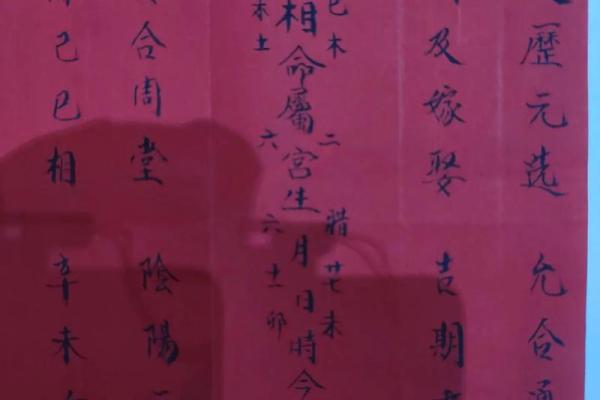 歷元选 允合通
及嫁娶 吉期
巳木 二 腊廿未
相命屬宮生月日時今
木土 六 六十一卯
合周堂 陰陽
己巳相 辛未